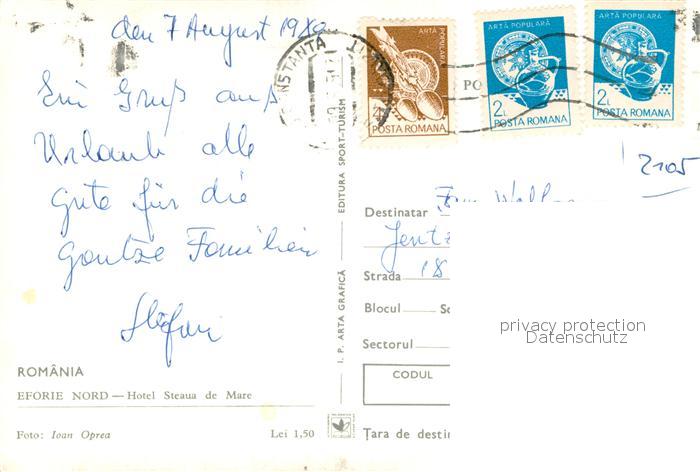 den 7 August 198
Ein Gruß aus
Urlaub alle
Gute für die
Gantze Familien
Stefan
ROMÂNIA
EFORIE NORD — Hotel Steaua de Mare
Foto: Ioan Oprea
Lei 1,50
I. P. ARTA GRAFICĂ
EDITURA SPORT-TURISM
CONSTANTA
ARTĂ POPULARĂ
POSTA ROMANA
ARTĂ POPULARĂ
2L
POSTA ROMANA
ARTĂ POPULARĂ
2L
POSTA ROMANA
PO
2105
Destinatar
Strada 18
Blocul Sc
Sectorul
CODUL
Țara de desti
privacy protection
Datenschutz